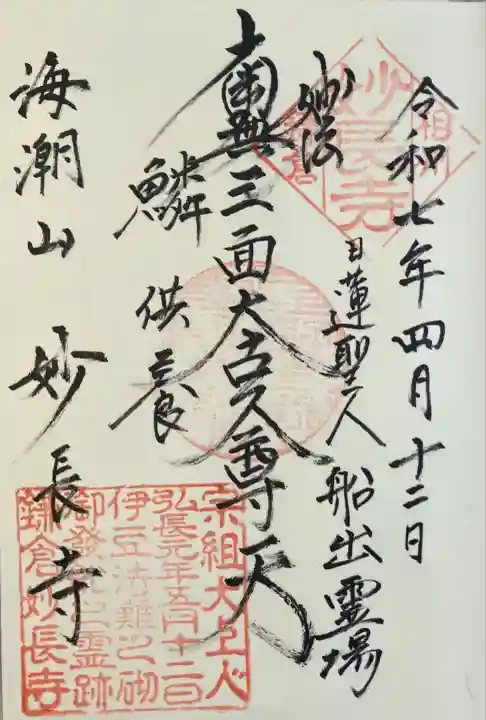 令和七年四月十二日
妙法
日蓮聖人
船出霊場
南無三面大古久尊天
鱗供養
海潮山 妙長寺
相州
鎌倉
妙長寺
宗祖大上人
弘長元年五月十二日
伊豆法難之砌
御發船之霊跡
鎌倉妙長寺